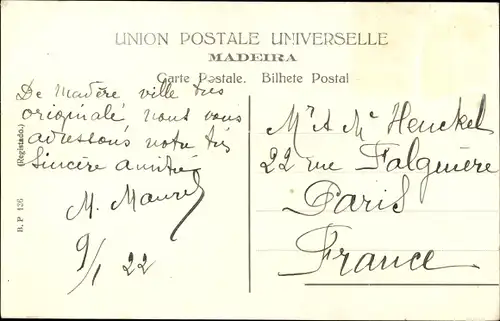 UNION POSTALE UNIVERSELLE
MADEIRA
Carte Postale. Bilhete Postal
De Madère ville très
originale nous vous
adressons notre très
sincère amitié
M. Maurel
9/1 22
Mr & Me Henckel
22 rue Falguière
Paris
France
B. P 126 (Registado.)